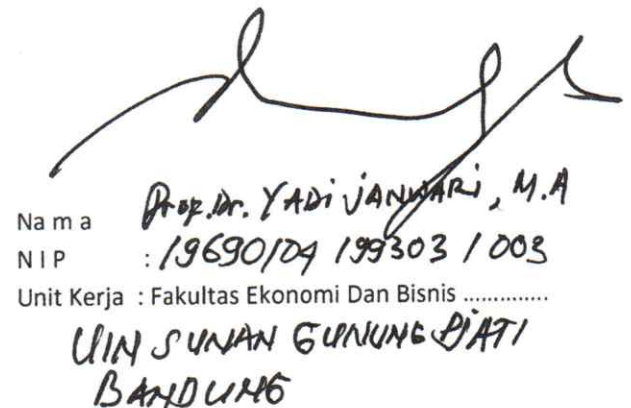 Na m a Prof. Dr. YADi JANWARi, M.A
N I P : 19690104 199303 1 003
Unit Kerja : Fakultas Ekonomi Dan Bisnis ..............
UIN SUNAN GUNUNG DJATI
BANDUNG